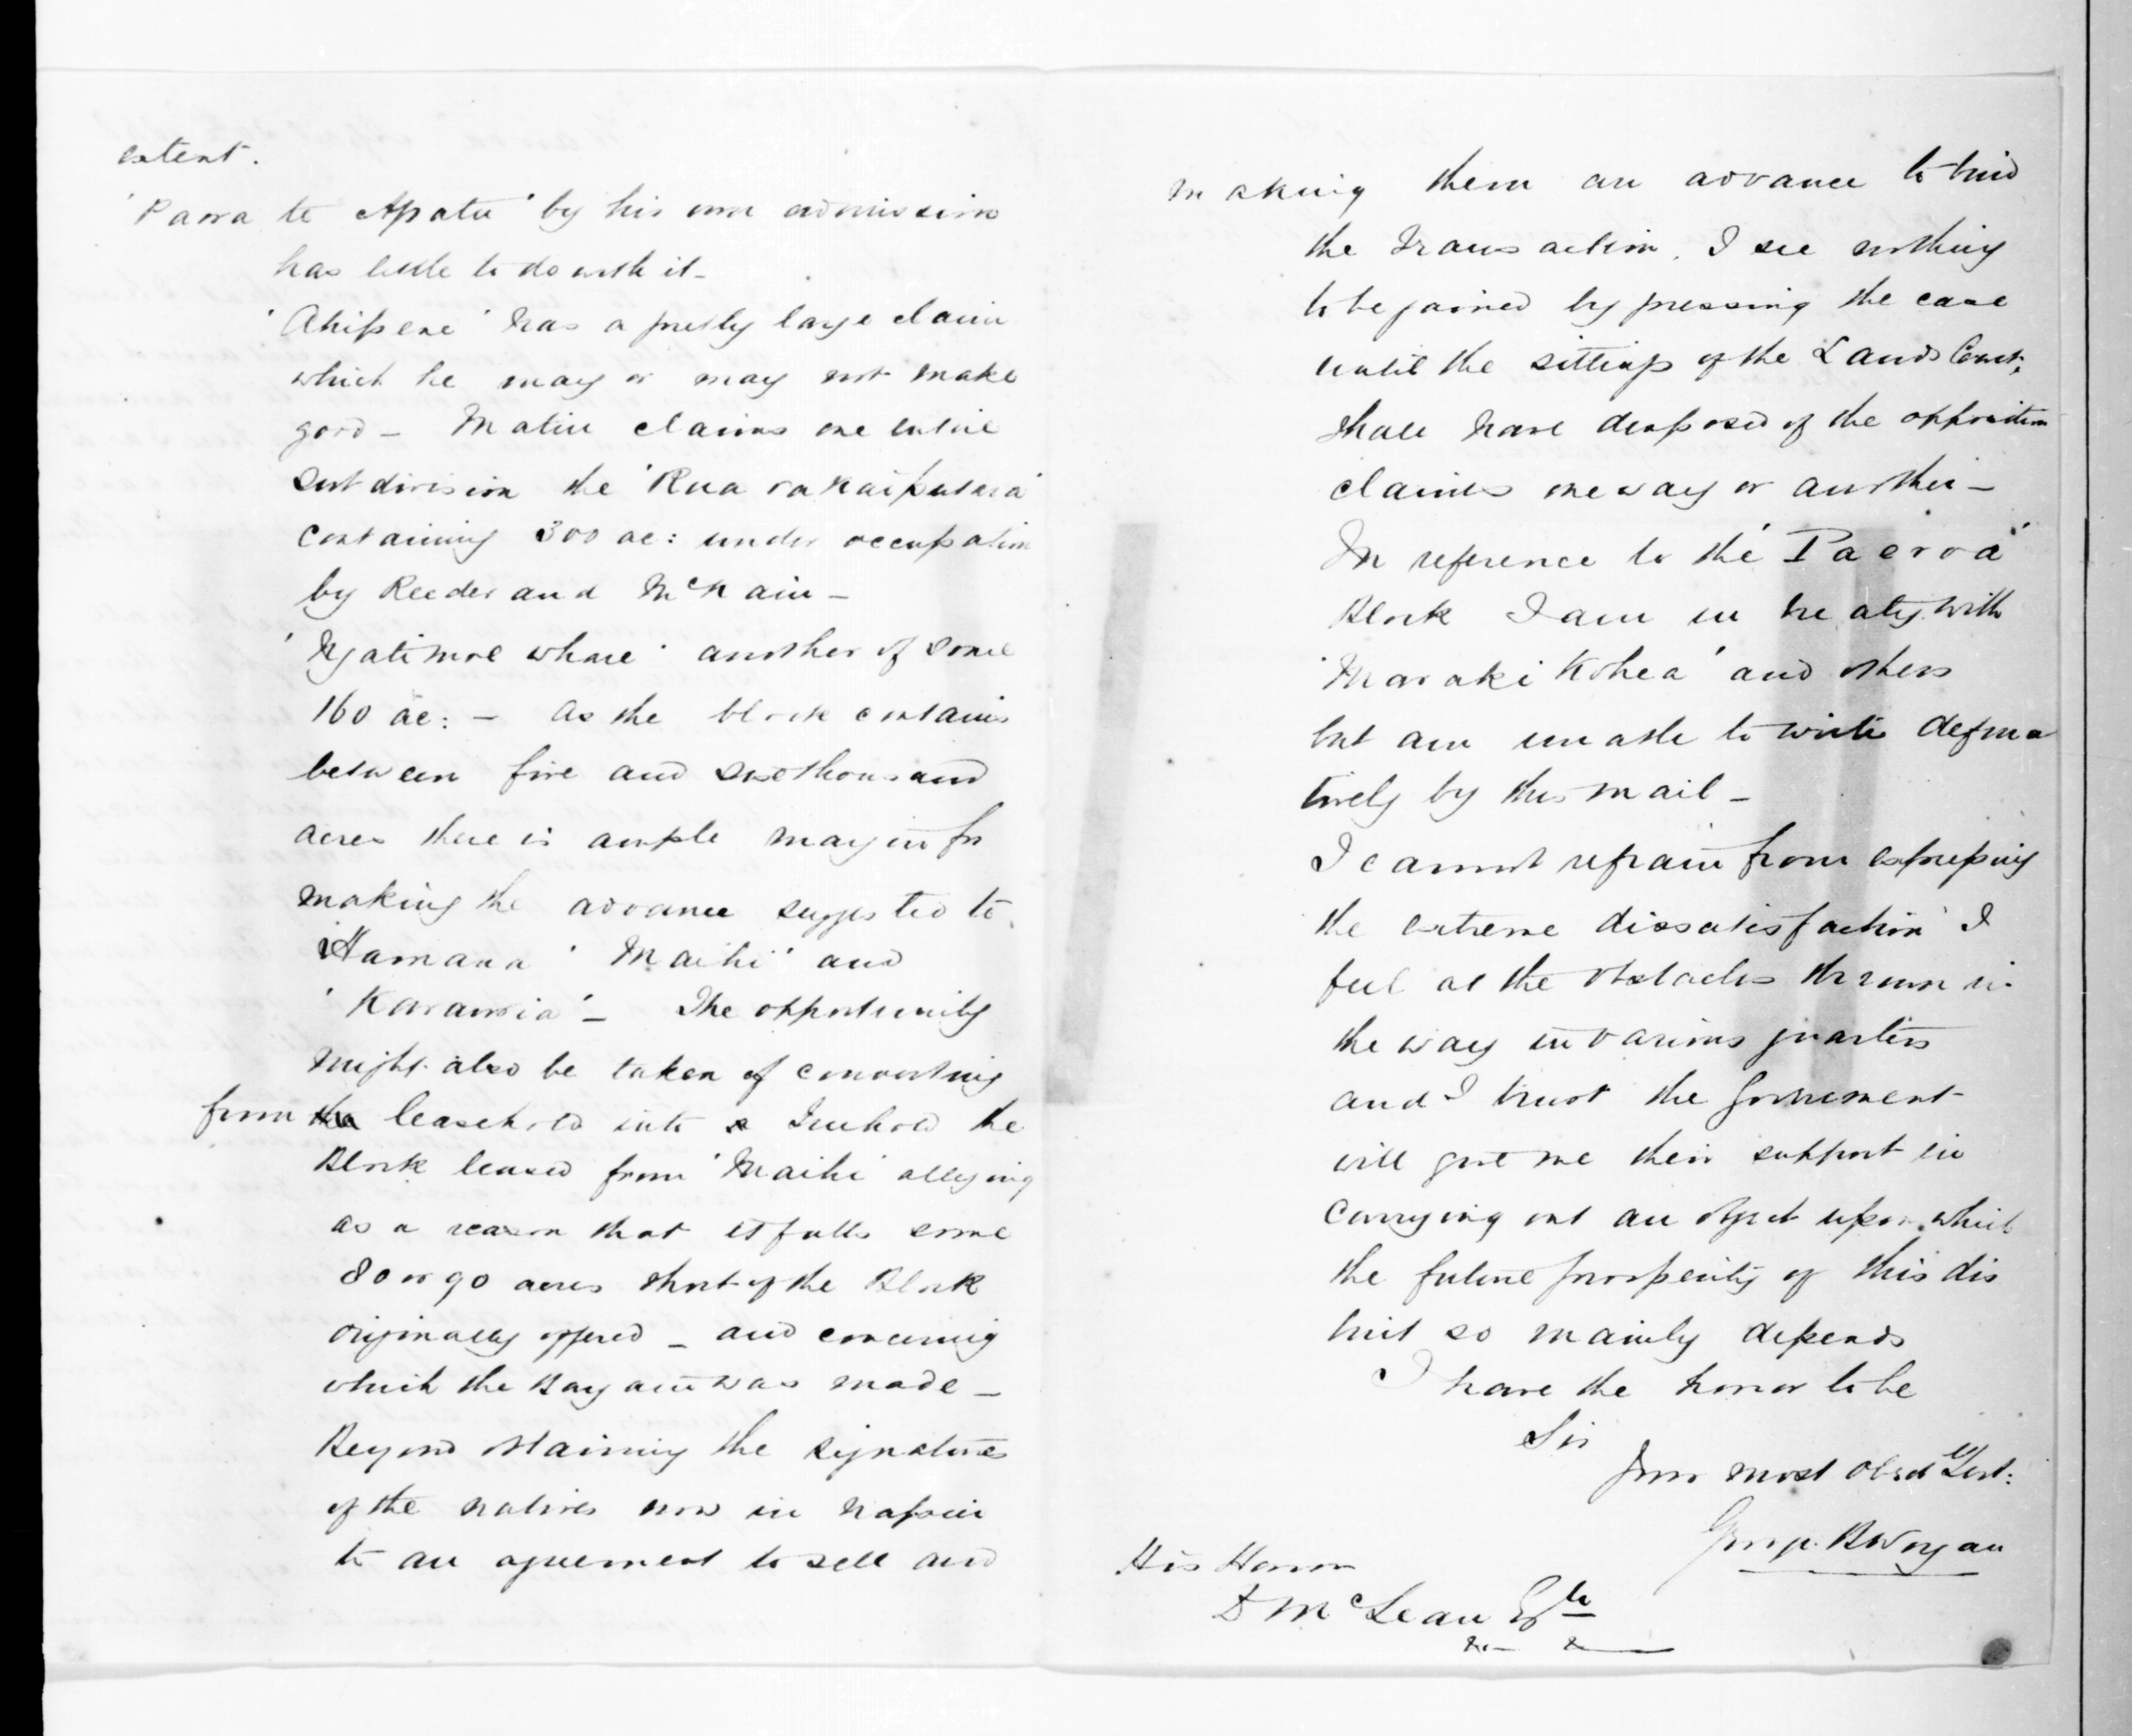 extent.
'Paora te Apatu' by his own admission
has little to do with it -
'Ahipene' has a pretty large claim
which he may or may not make
good - Matiu claims one entire
subdivision the 'Rua
containing 300 ac: under occupation
by Reeder and McKain -
'Ngatimoe whare' another of some
160 ac: - As the block contains
between five and six thousand
acres there is ample margin for
making the advance suggested to
'Hamana' 'Maihi' and
'Karauria' - The opportunity
might also be taken of converting
from the leasehold into a Freehold the
Block leased from 'Maihi' alleging
as a reason that it falls some
80 or 90 acres short of the Block
originally offered - and concerning
which the Bargain was made -
Beyond obtaining the signatures
of the natives now in Napier
to an agreement to sell and
making them an advance to bind
the transaction, I see nothing
to be gained by pressing the case
until the sittings of the Lands Court,
shall have disposed of the opposition
claims one way or another -
In reference to the 'Paeroa'
Block I am in treaty with
'Maraki Kohea' and others
but am unable to write defina
tively by this mail -
I cannot refrain from expressing
the extreme dissatisfaction I
feel at the obstacles thrown in
the way in various quarters
and I trust the Government
will give me their support in
carrying out an object upon which
the future prosperity of this dis
trict so mainly depends
I have the honor to be
Sir
Your most Obedt Servt:
George B Worgan
His Honor
D McLean Esqre
&c &c